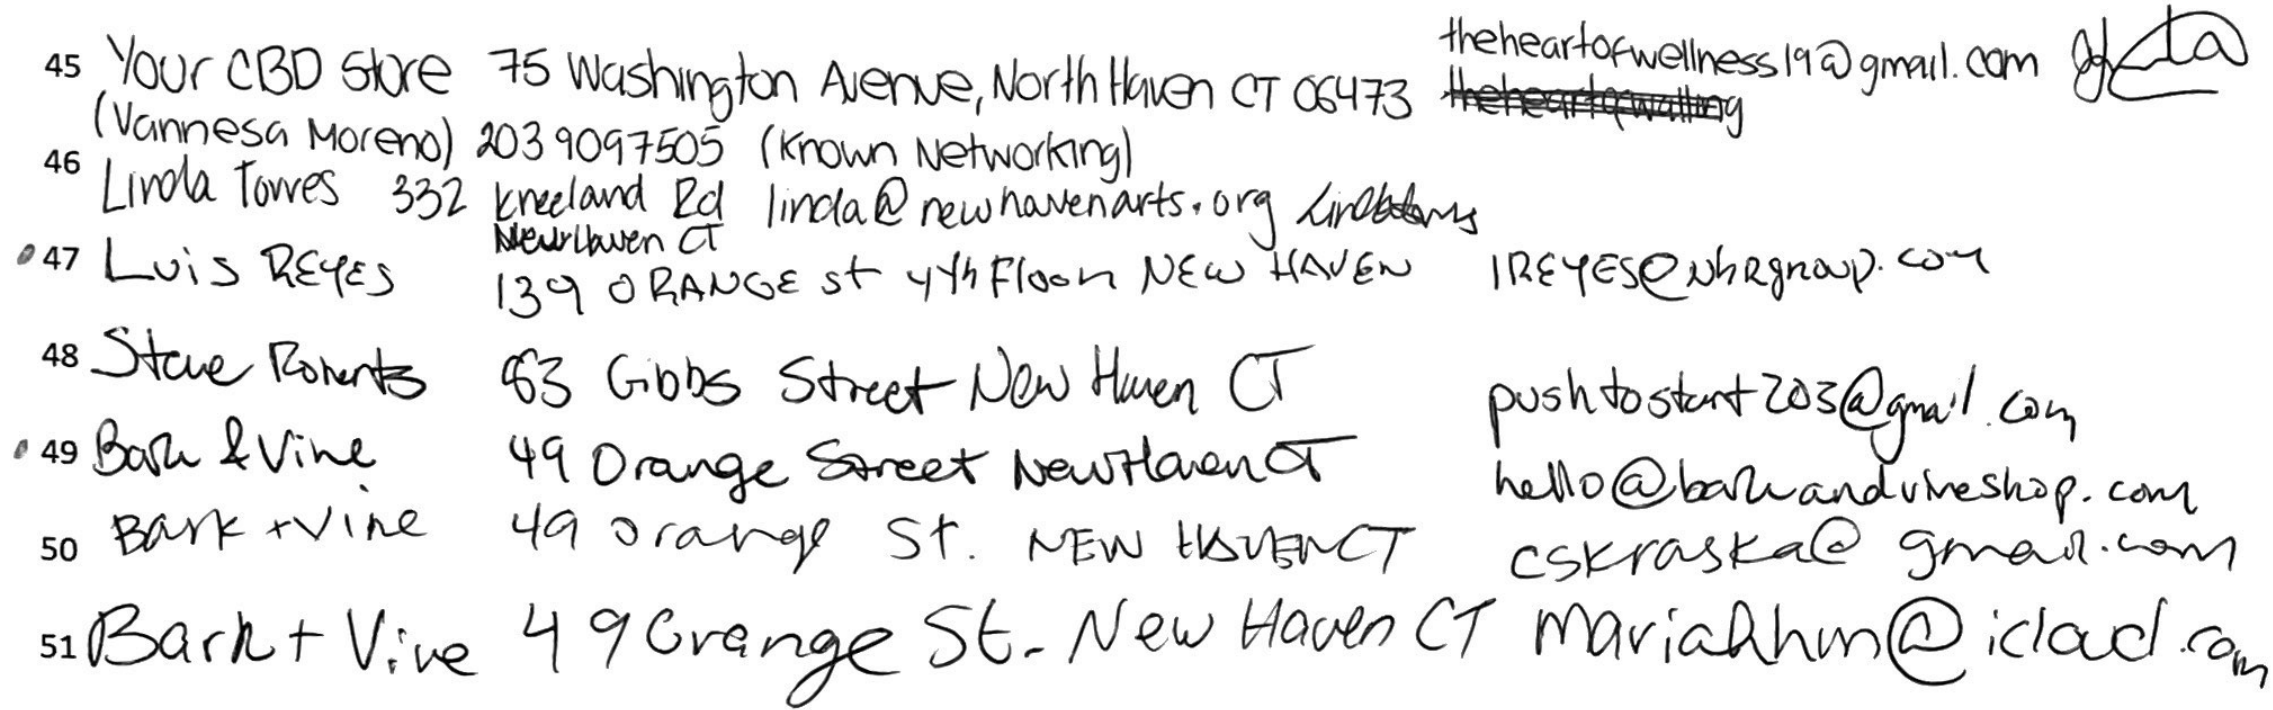 45 Your CBD Store 75 Washington Avenue, North Haven CT 06473 theheartofwellness19@gmail.com
(Vannesa Moreno) 203 9097505 (Known Networking)
46 Linda Torres 332 Kneeland Rd linda@newhavenarts.org
New Haven CT
47 Luis REYES 139 ORANGE St 4th Floor NEW HAVEN lREYES@NHRgroup.com
48 Steve Roberts 63 Gibbs Street New Haven CT pushtostart203@gmail.com
49 Bark & Vine 49 Orange Street New Haven CT hello@barkandvineshop.com
50 Bark + Vine 49 Orange St. NEW HAVEN CT cskraska@gmail.com
51 Bark + Vine 49 Orange St. New Haven CT @icloud.com